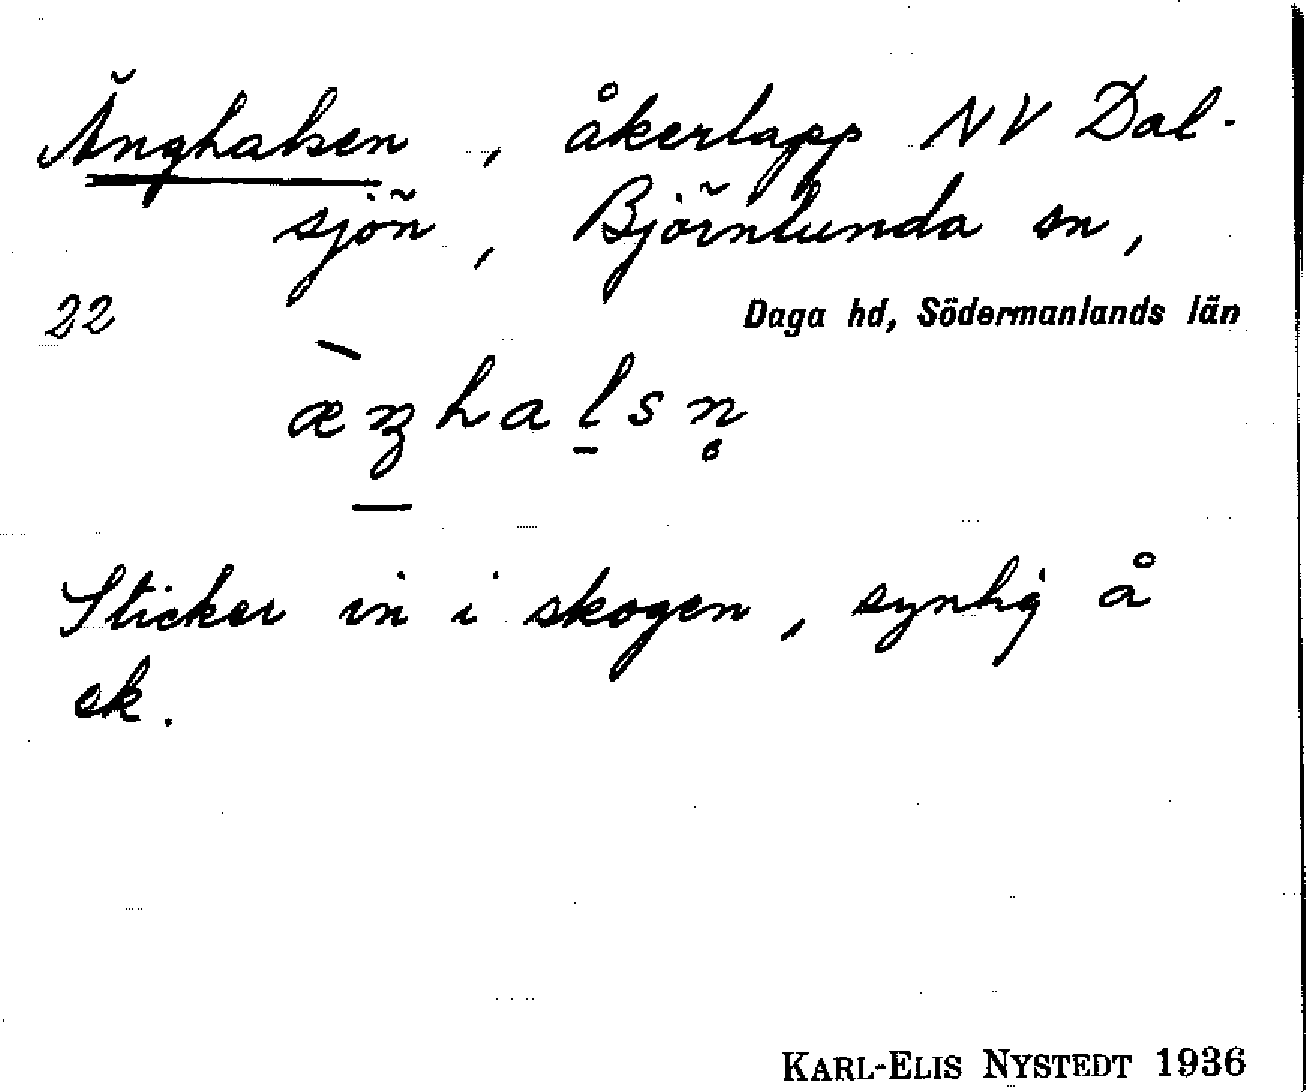 Änghalsen, åkerlapp NV Dal-
sjön, Björnlunda sn,
22 Daga hd, Södermanlands län
æ̀ŋhalsn̥
Sticker in i skogen, synlig å
ek.
KARL-ELIS NYSTEDT 1936